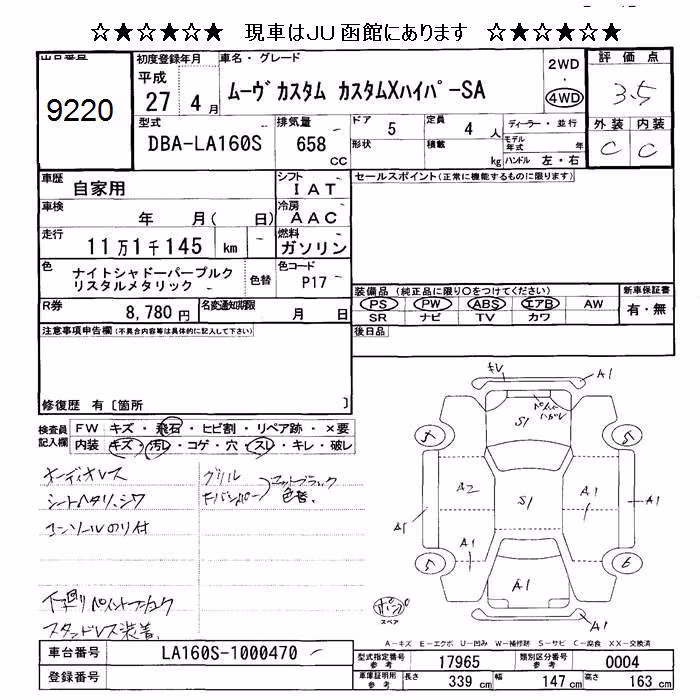 ☆★☆★☆★ 現車はJU函館にあります ☆★☆★☆★
出品番号
9220
初度登録年月
平成
27 4 月
車名・グレード
ムーヴ カスタム カスタムXハイパーSA
2WD
・
4WD
評価点
3.5
外装 内装
C C
型式
DBA-LA160S
排気量
658
CC
ドア
5
定員
4 人
ディーラー・並行
モデル年式 年
形状
積載
kg
ハンドル 左・右
車歴
自家用
シフト
IAT
セールスポイント(正常に機能するものに限ります)
車検
年 月( 日)
冷房
AAC
走行
11万1千145 km
燃料
ガソリン
色
ナイトシャドーパープルク
リスタルメタリック
色替
色コード
P17
装備品 (純正品に限り○をつけてください)
新車保証書
PS PW ABS エアB AW
有・無
SR ナビ TV カワ
R券
8,780 円
名変通知期限
月 日
後日品
注意事項申告欄(不具合内容等は具体的に記入して下さい)
修復歴 有 [箇所 ]
検査員
記入欄
FW キズ・飛石・ヒビ割・リペア跡・×要
内装 キズ・汚レ・コゲ・穴・スレ・キレ・破レ
オーディオレス
シートヘタリ、シワ
コンソールのり付
グリル
色替、
下廻り
スタッドレス装着、
A1
S1
5 5
A2 S1 A1
A1 A1
A1 A1
5 6
A1
A1
パンク
スペア
A-キズ E-エクボ U-凹み W-補修跡 S-サビ C-腐食 XX-交換済
車台番号
LA160S-1000470
登録番号
型式指定番号
参考
17965
類別区分番号
参考
0004
車庫証明用
参考
長さ 339 cm
幅 147 cm
高さ 163 cm